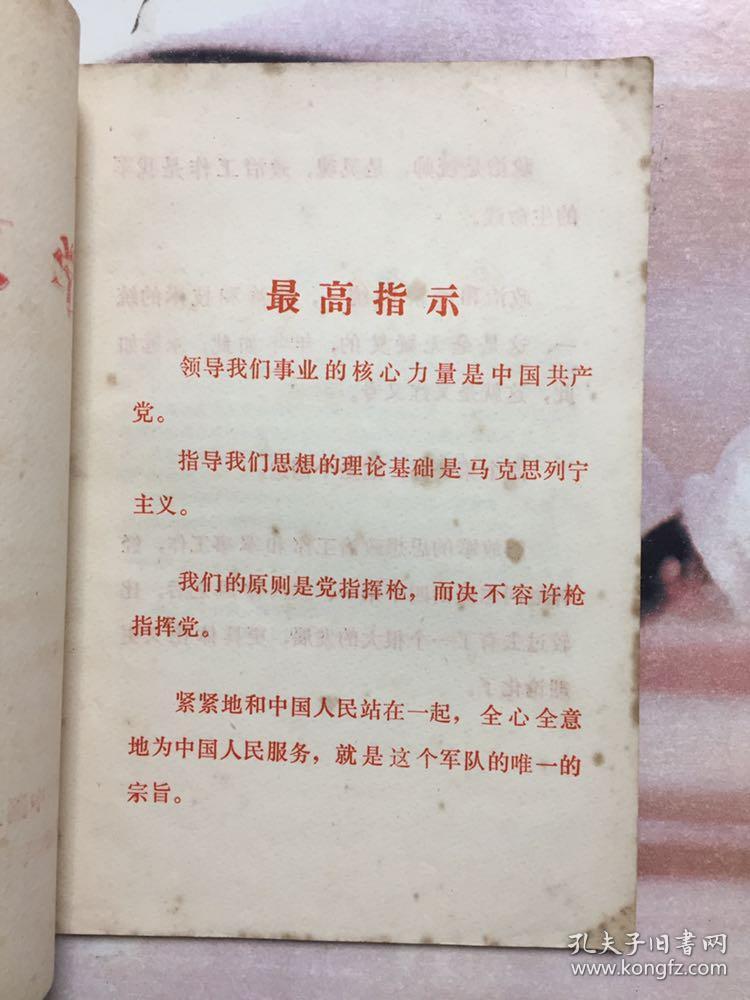 最高指示
领导我们事业的核心力量是中国共产
党。
指导我们思想的理论基础是马克思列宁
主义。
我们的原则是党指挥枪，而决不容许枪
指挥党。
紧紧地和中国人民站在一起，全心全意
地为中国人民服务，就是这个军队的唯一的
宗旨。
孔夫子旧书网
www.kongfz.com